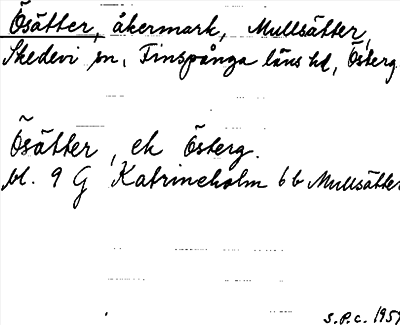 Ösätter, åkermark, Mullsätter,
Skedevi sn, Finspånga läns hd, Österg.
Ösätter, ek Österg.
bl. 9 G Katrineholm 6 b Mullsätter
S.P.C. 1951